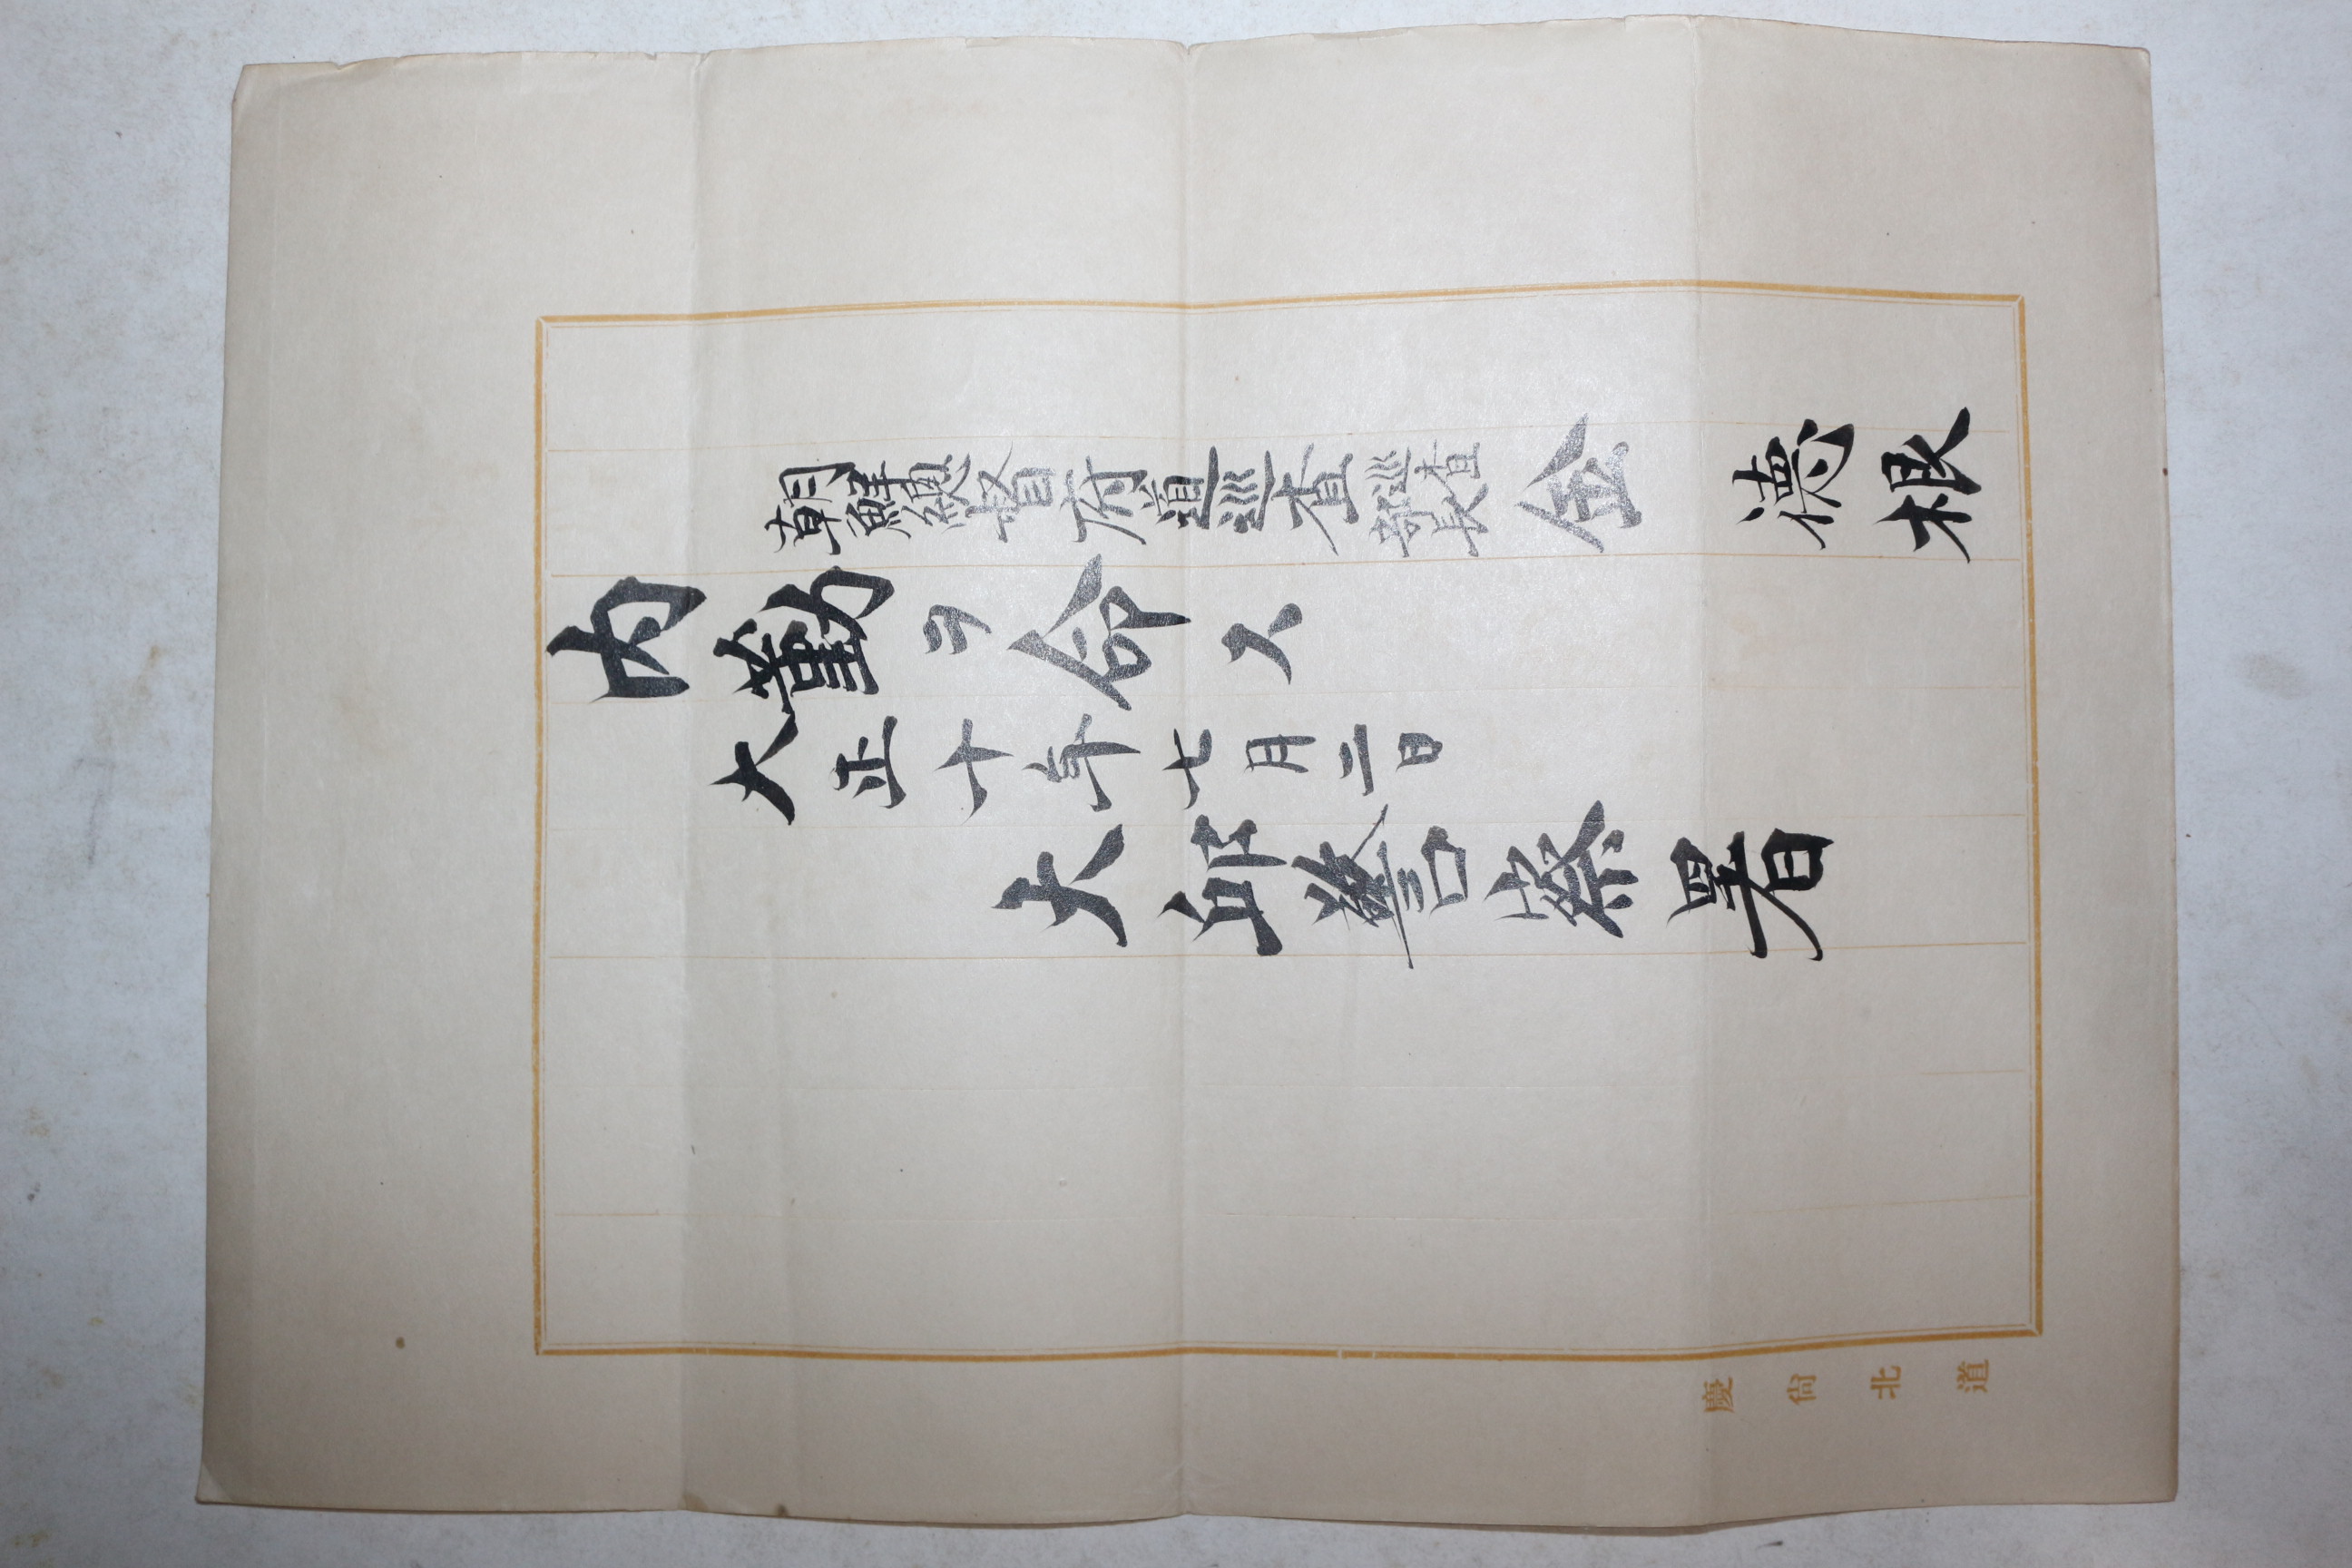 朝鮮總督府道巡査 巡査部長 金德根
內勤ヲ命ス
大正十年七月二日
大邱警察署
慶尙北道